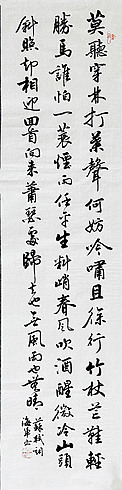 莫聽穿林打葉聲何妨吟嘯且徐行竹杖芒鞋輕
勝馬誰怕一蓑煙雨任平生料峭春風吹酒醒微冷山頭
斜照却相迎回首向來蕭瑟處歸去也无風雨也無晴 蘇軾詞